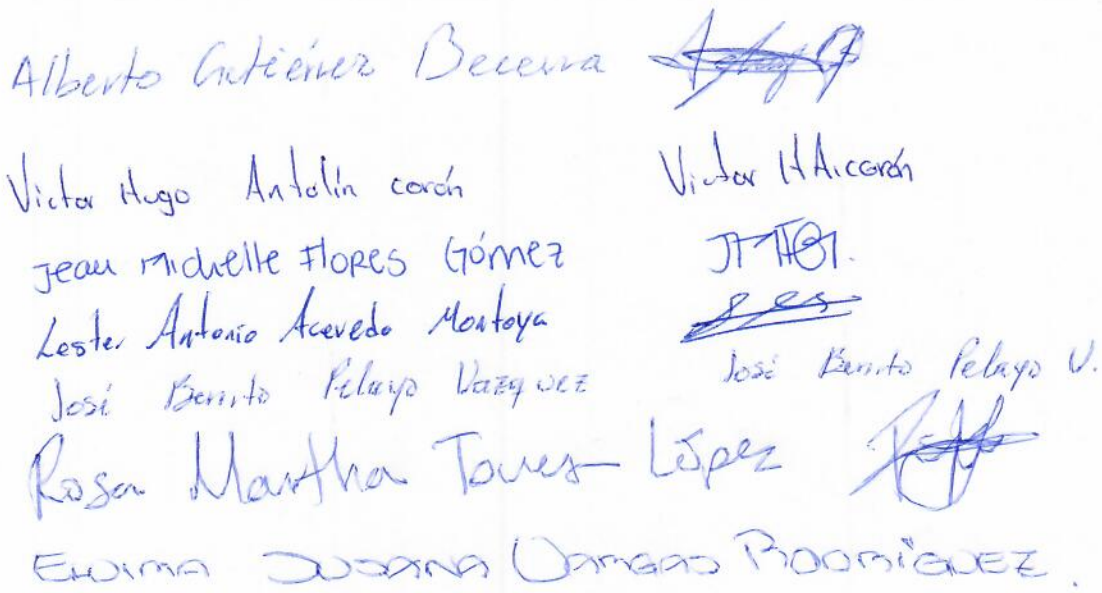 Alberto Gutiérrez Becerra
Victor Hugo Antolín cerón Victor H A. cerón
Jean Michelle Flores Gómez
Lester Antonio Acevedo Montoya
José Benito Pelayo Vazquez José Benito Pelayo V.
Rosa Martha Torres López
Susana Vargas Rodríguez.